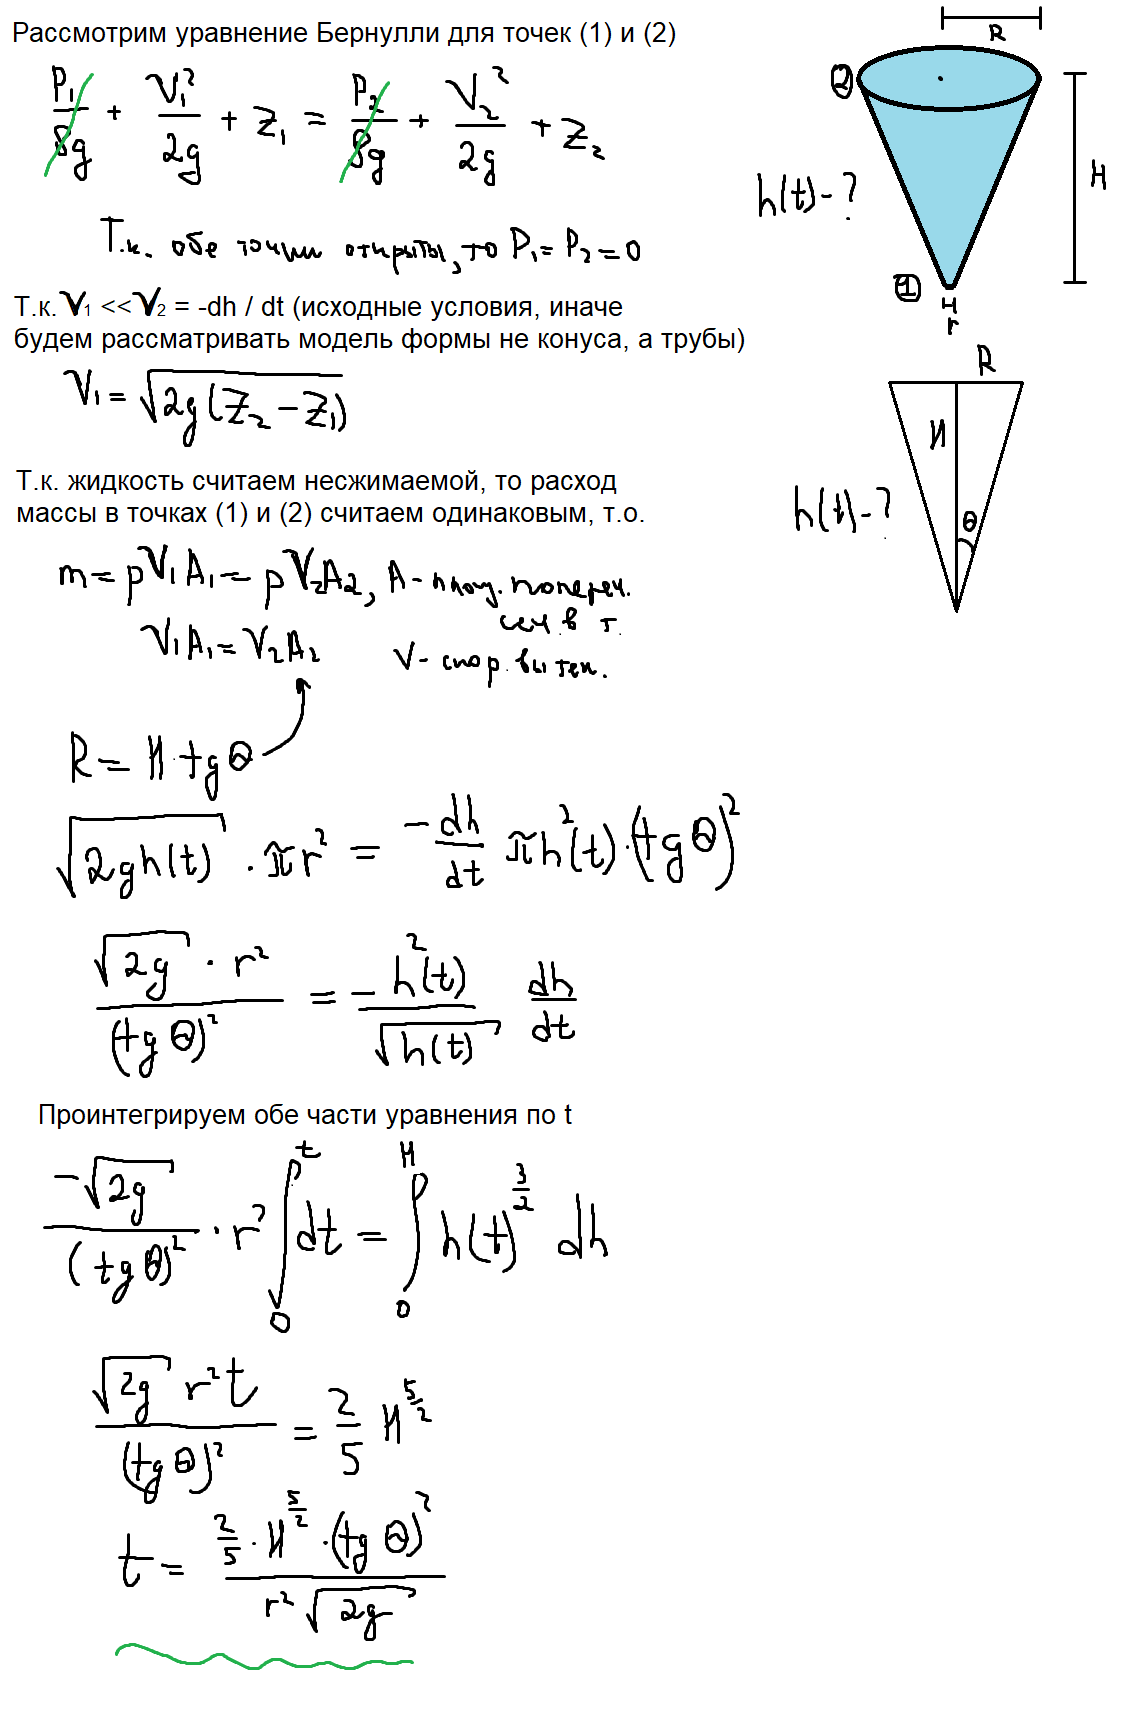 Рассмотрим уравнение Бернулли для точек (1) и (2)
P₁/ρg + V₁²/2g + z₁ = P₂/ρg + V₂²/2g + z₂
Т.к. обе точки открыты, то P₁ = P₂ = 0
Т.к. V₁ << V₂ = -dh / dt (исходные условия, иначе
будем рассматривать модель формы не конуса, а трубы)
V₁ = √(2g(z₂ - z₁))
Т.к. жидкость считаем несжимаемой, то расход
массы в точках (1) и (2) считаем одинаковым, т.о.
m = ρV₁A₁ = ρV₂A₂, A - площ. попереч.
сеч. в т.
V₁A₁ = V₂A₂
V - скор. вытек.
R = H · tg θ
√(2gh(t)) · πr² = -dh/dt πh²(t) · (tg θ)²
√(2g) · r² / (tg θ)² = - h²(t)/√(h(t)) dh/dt
Проинтегрируем обе части уравнения по t
-√(2g) / (tg θ)² · r² ∫₀ᵗ dt = ∫₀ᴴ h(t)^(3/2) dh
√(2g) r² t / (tg θ)² = 2/5 H^(5/2)
t = 2/5 · H^(5/2) · (tg θ)² / r² √(2g)
R
2
h(t) - ?
H
1
r
R
H
h(t) - ?
θ